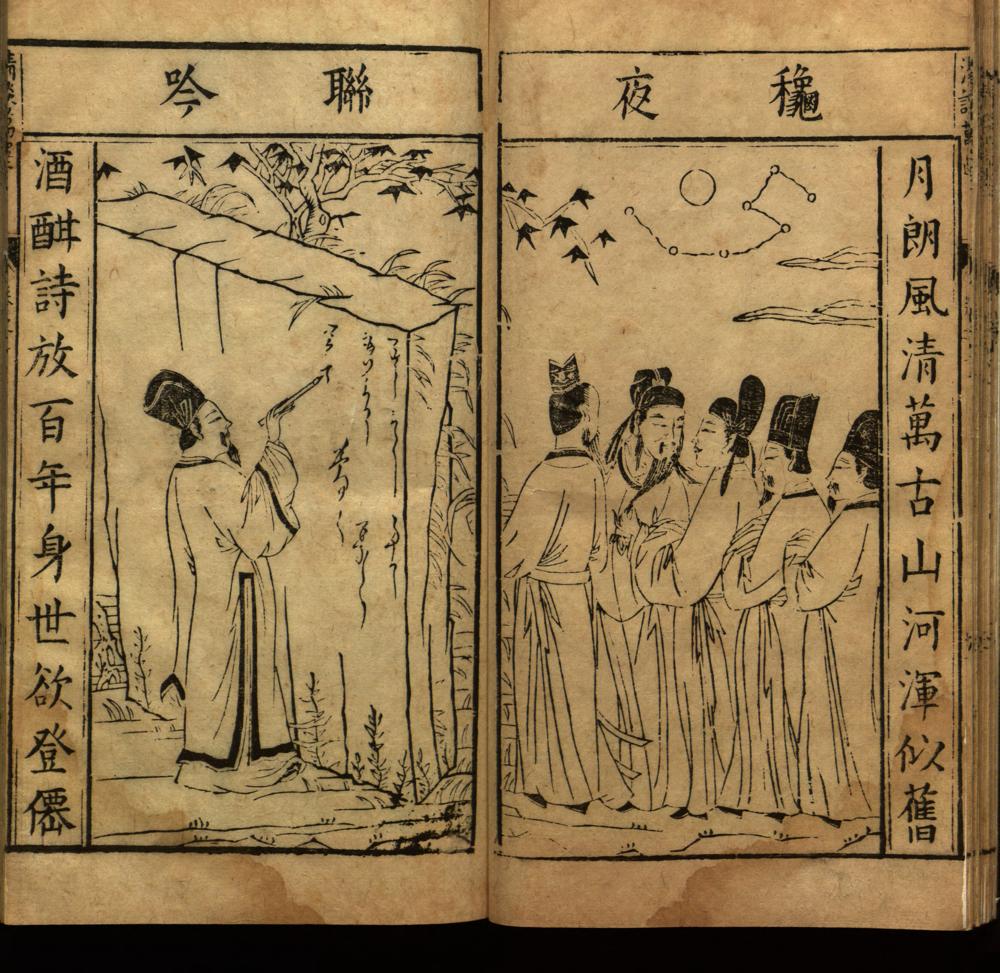 龝夜
月朗風清萬古山河渾似舊
聯吟
酒酣詩放百年身世欲登僊